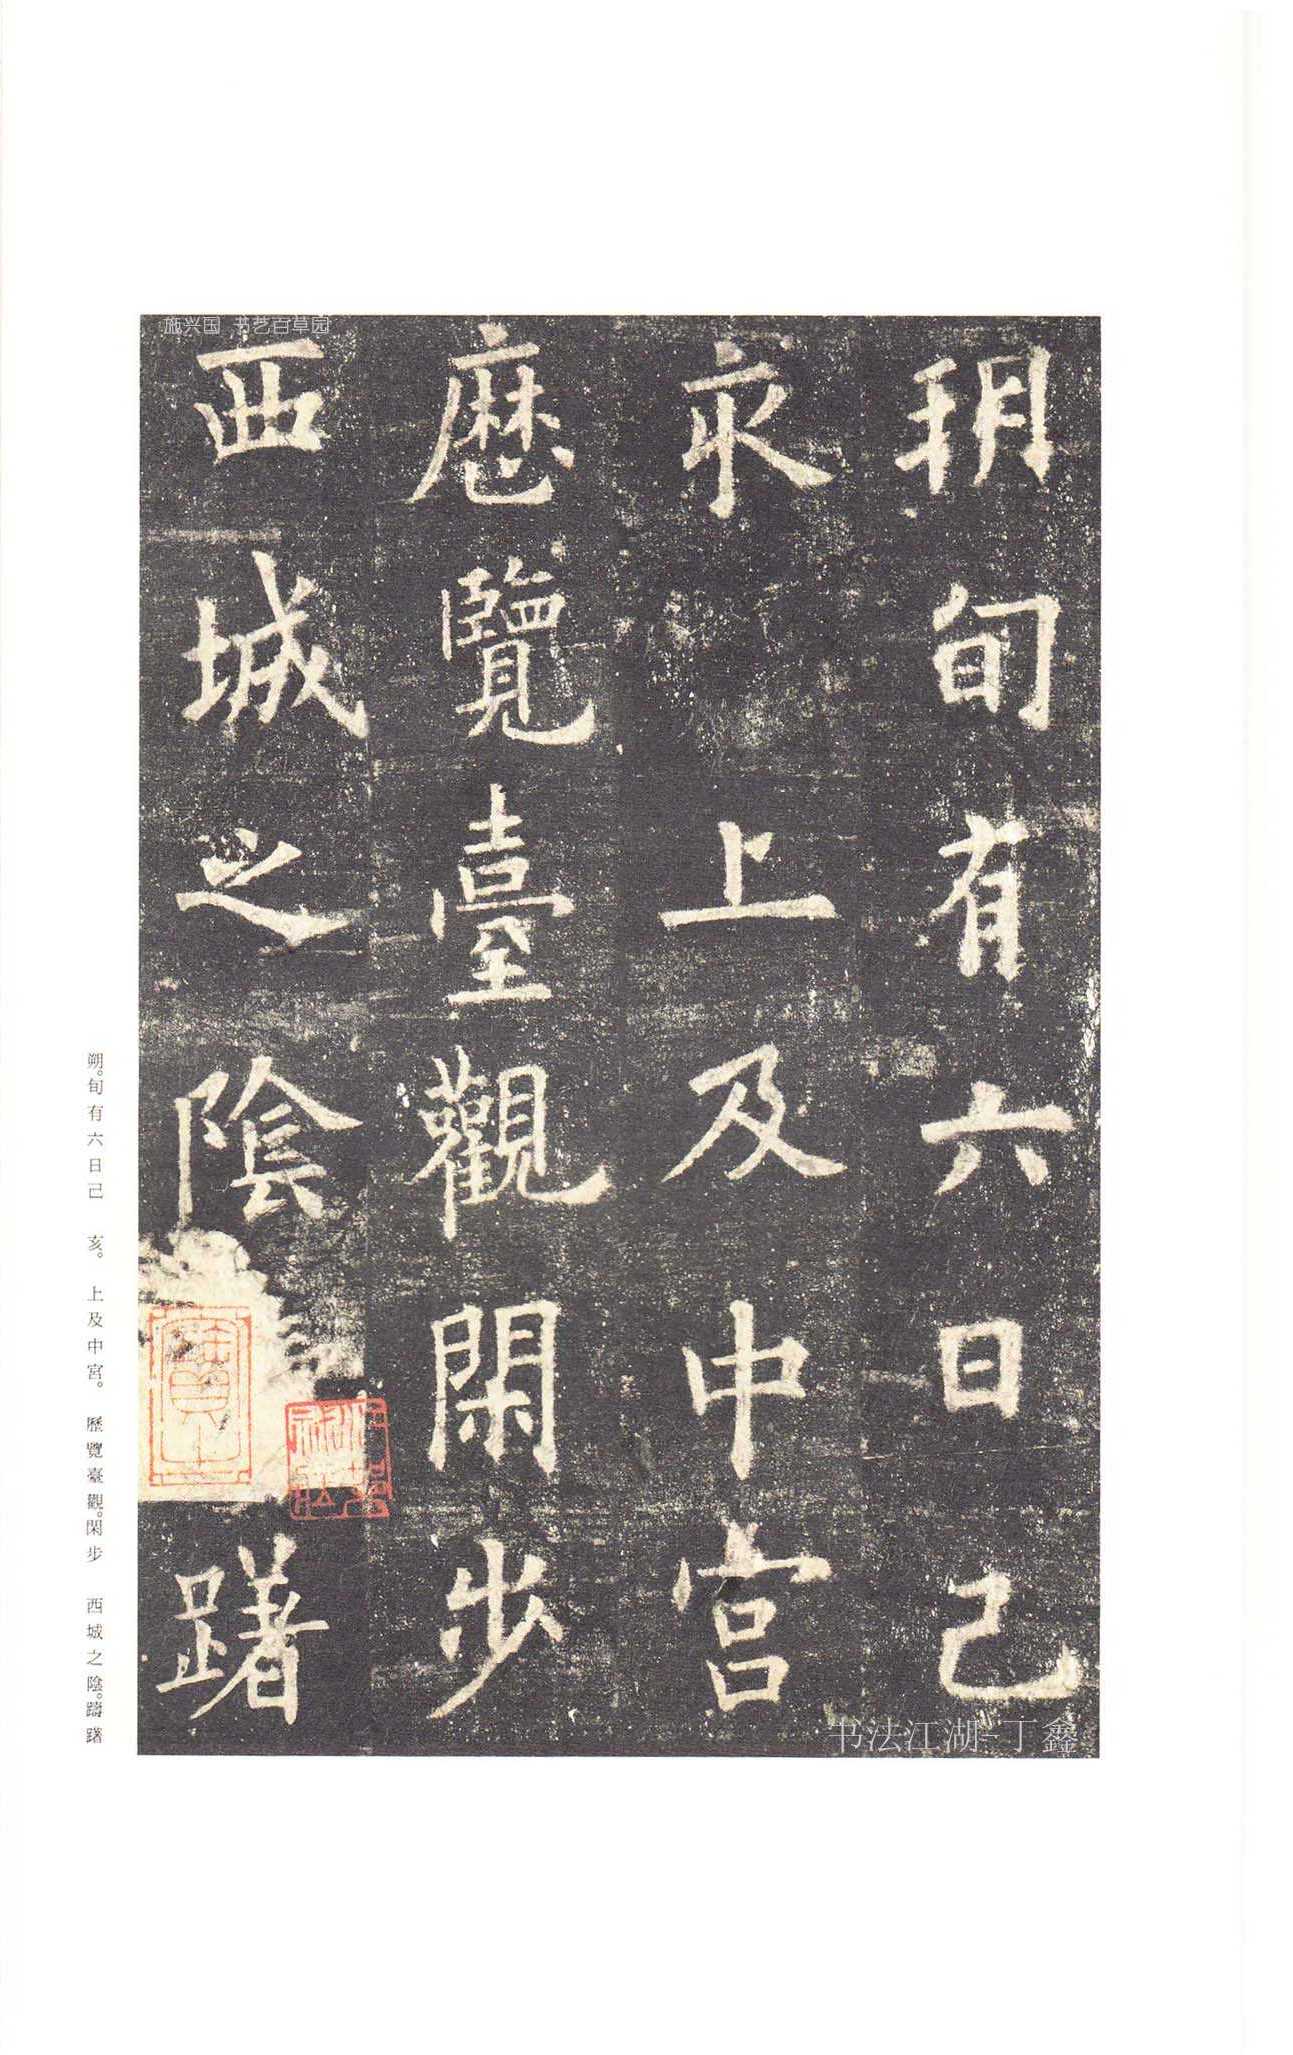 朔旬有六日己
亥上及中宮
歷覽臺觀閑步
西城之陰躇
朔。旬有六日己 亥。 上及中宮。 歷覽臺觀。閑步 西城之陰。躊躇
施兴国 书艺百草园
书法江湖-丁鑫